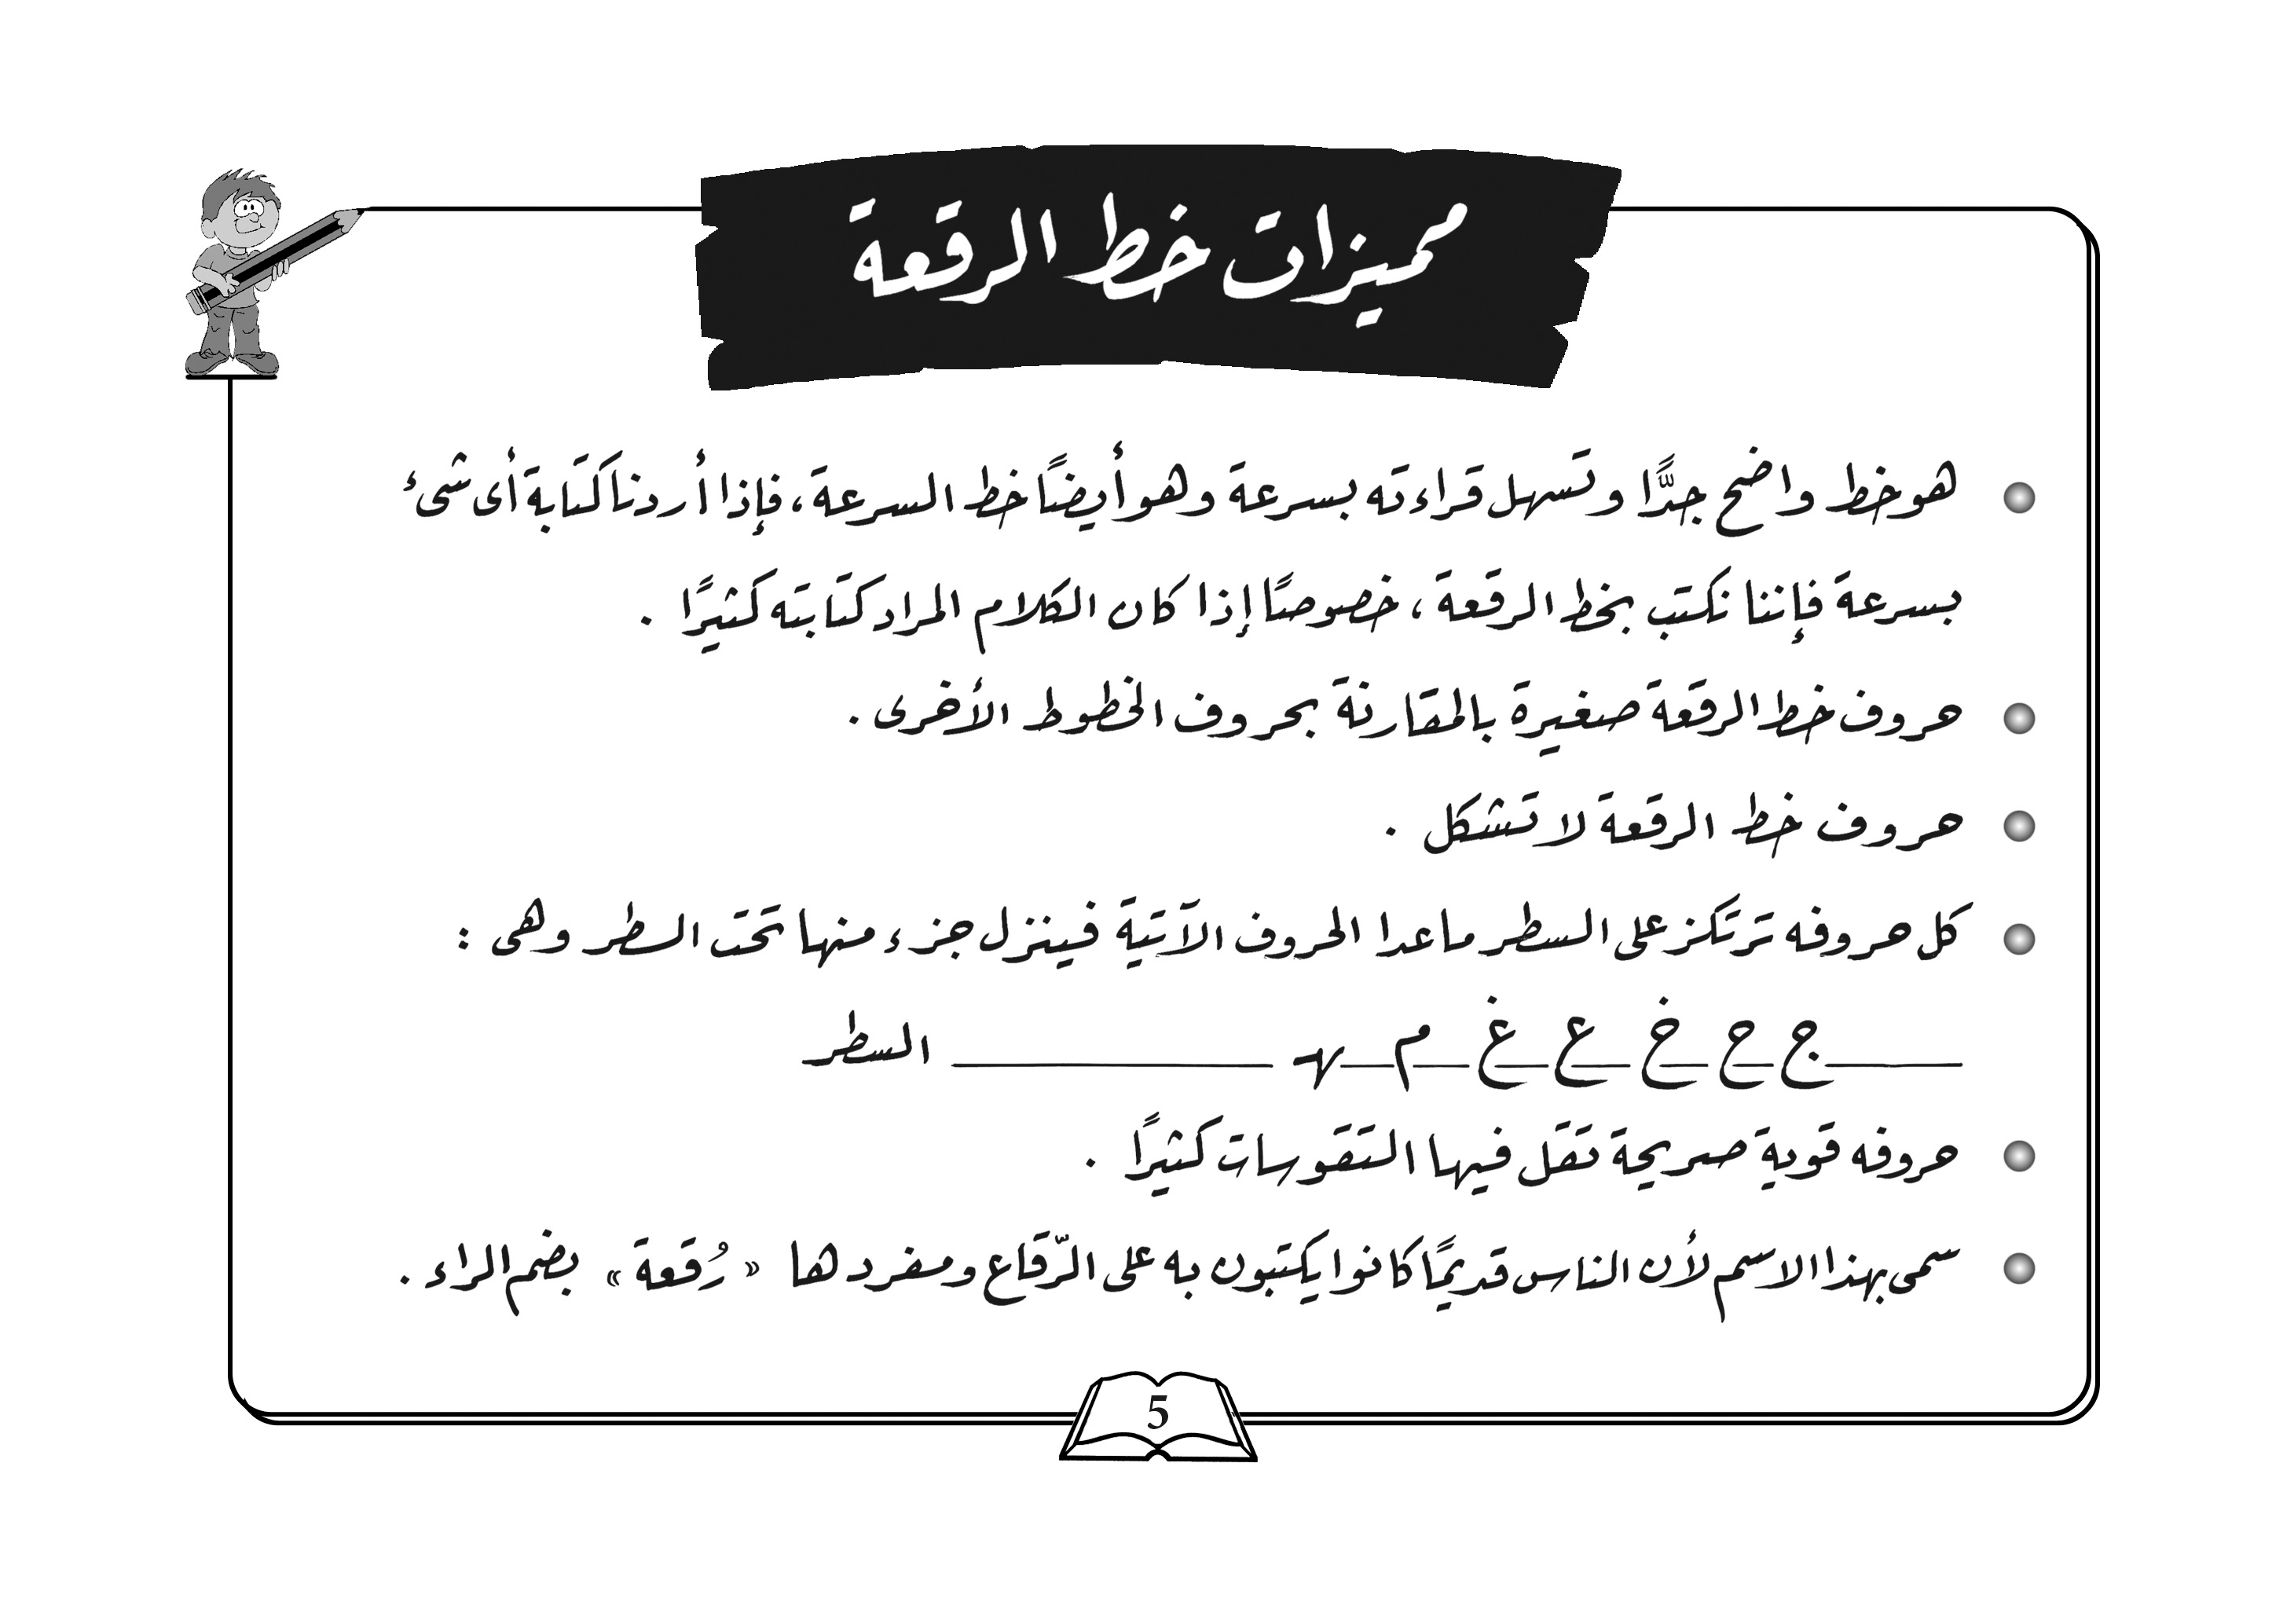 مميزات خط الرقعة
هو خط واضح جدًّا وتسهل قراءته بسرعة وهو أيضًا خط السرعة، فإذا أردنا كتابة أى شىء
بسرعة فإننا نكتب بخط الرقعة، خصوصًا إذا كان الكلام المراد كتابته كثيرًا .
حروف خط الرقعة صغيرة بالمقارنة بحروف الخطوط الأخرى .
حروف خط الرقعة لا تشكل .
كل حروفه ترتكز على السطر ما عدا الحروف الآتية فينزل جزء منها تحت السطر وهى :
ج ح خ ع غ م ـهـ السطر
حروفه قوية صريحة تقل فيها التقوسات كثيرًا .
سمى بهذا الاسم لأن الناس قديمًا كانوا يكتبون به على الرّقاع ومفردها « رُقعة » بضم الراء .
5